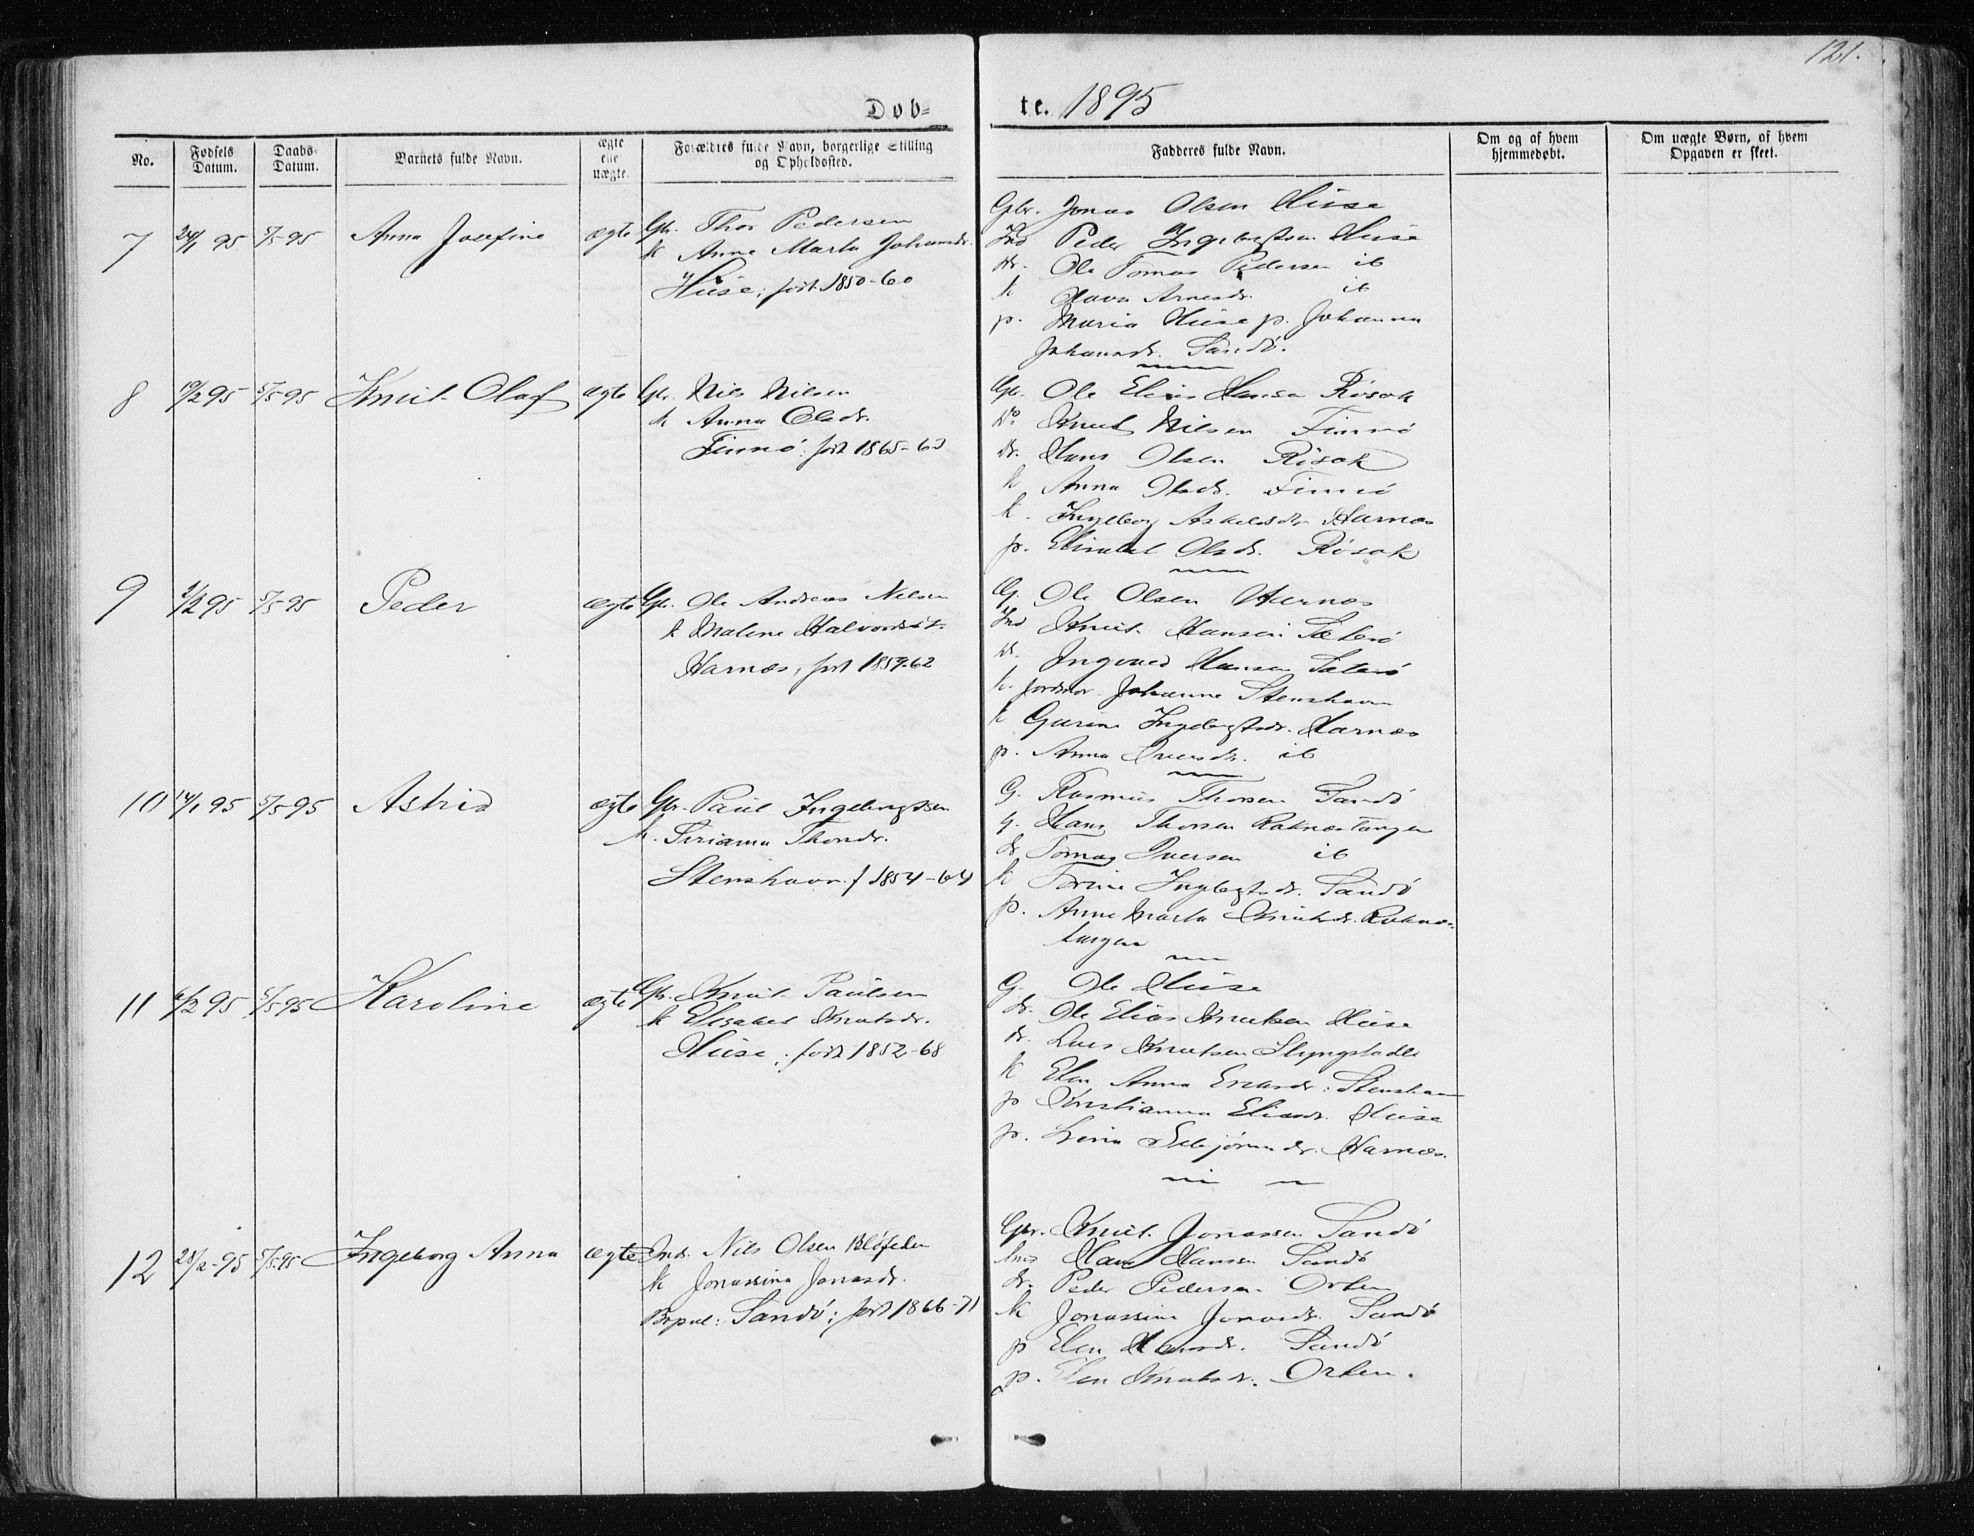 121.
Døb-
te. 1895
No.
Fødsels Datum.
Daabs- Datum.
Barnets fulde Navn.
ægte elle uægte.
Forældres fulde Navn, borgerlige Stilling
og Opholdssted.
Fadderes fulde Navn.
Om og af hvem
hjemmedøbt.
Om uægte Børn, af hvem
Opgaven er skeet.
7 24/1 95 5/5-95 Anna Josefine ægte Gbr. Thor Pedersen
k Anne Marta Johansdr.
Huse; født 1850-60
Gbr. Jonas Olsen Huse
Ind Peder Ingebrigtsen Huse
dr. Ole Tomas Pedersen ib
k Olava Arnesdr. ib
p. Maria Huse p. Johanna
Johansdr. Sandø.
8 19/2 95 5/5-95 Knut Olaf ægte Gbr. Nils Nilsen
k Anna Olsdr.
Finnø: født 1865-63
Gbr. Ole Elias Hansen Røsok
Do Knut Nilsen Finnø
dr. Hans Olsen Røsok
k Anna Olsdr. Finnø
k. Ingeborg Harnes
p. Elisabet Olsdr. Røsok
9 95 5/5-95 Peder ægte Gbr. Ole Andreas Nilsen
k Malene Halvorsdt.
Harnæs, født 1859-62
G. Ole Olsen Harnæs
Ind Knut Hansen Sæterø
dr. Ingvald Hansen Sæterø
k. Jordmor. Johanne Stenshavn
k Gurine Ingebrigtsdr. Harnæs
p. Anna Iversdr. ib
10 14/1 95 5/5 95 Astrid ægte Gbr. Paul Ingebrigtsen
k. Sirianna Thorsdr.
Stenshavn f 1854-64
G. Rasmus Thorsen Sandø
g. Hans Thorsen Raknestangen
dr Tomas Iversen ib
k Torine Ingebrigtsdr. Sandø
p. Anne Marta Knutsdr. Raknes-
tangen
11 6/2 95 5/5 95 Karoline ægte Gbr. Knut Paulsen
k Elisabet Knutsdr.
Huse; født 1852-68
G. Ole Huse
dr. Ole Elias Knutsen Huse
dr. Lars Knutsen
k Elen Anna Stenshavn
p Kristianna Eliasdr. Huse
p. Harnæs.
12 28/2-95 5/5.95 Ingeborg Anna ægte Ind. Nils Olsen
k Jonassina Jonasdr.
Sandø; født 1866-71
Gbr. Knut Jonassen Sandø
Ind Hans Hansen Sandø
dr. Peder Pedersen Orten
k Jonassine Jonasdr. Sandø
p Elen Hansdr. Sandø
p. Elen Knutsdr. Orten.